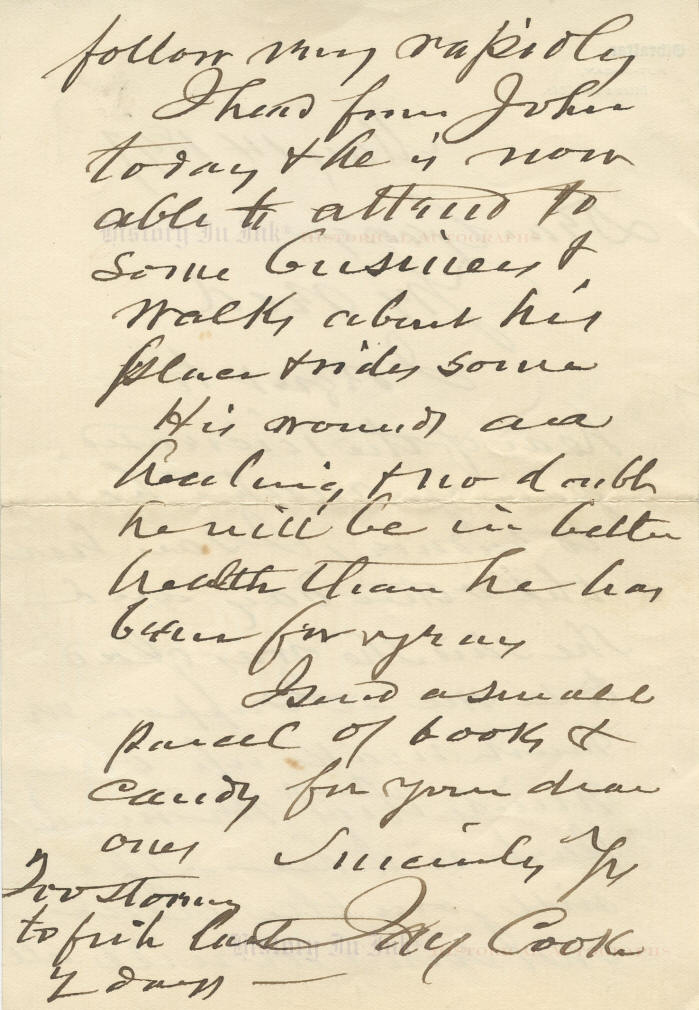 follow very rapidly
I head from John
today & he is now
able to attend to
some business &
walks about his
place & rides some
His wounds are
healing & no doubt
he will be in better
health than he has
been for years
I send a small
parcel of books &
candy for your dear
ones Sincerely Yrs
Jay Cooke
Too stormy
to fish last
2 days —
History In Ink
History In Ink